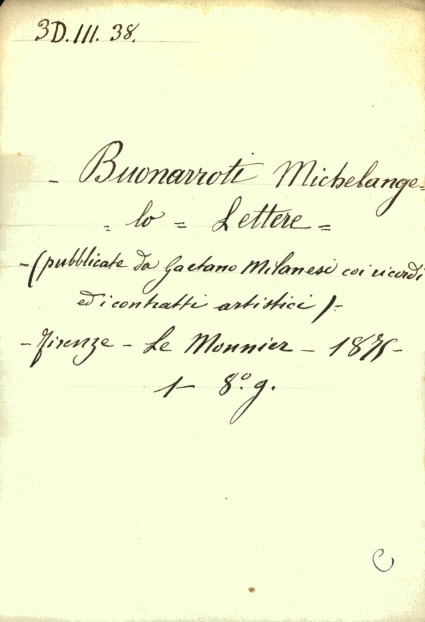 3D.III.38.
- Buonarroti Michelange=
= lo = Lettere =
- (pubblicate da Gaetano Milanesi coi ricordi
ed i contratti artistici) -
- Firenze - Le Monnier - 1875 -
1 - 8º. g.
C